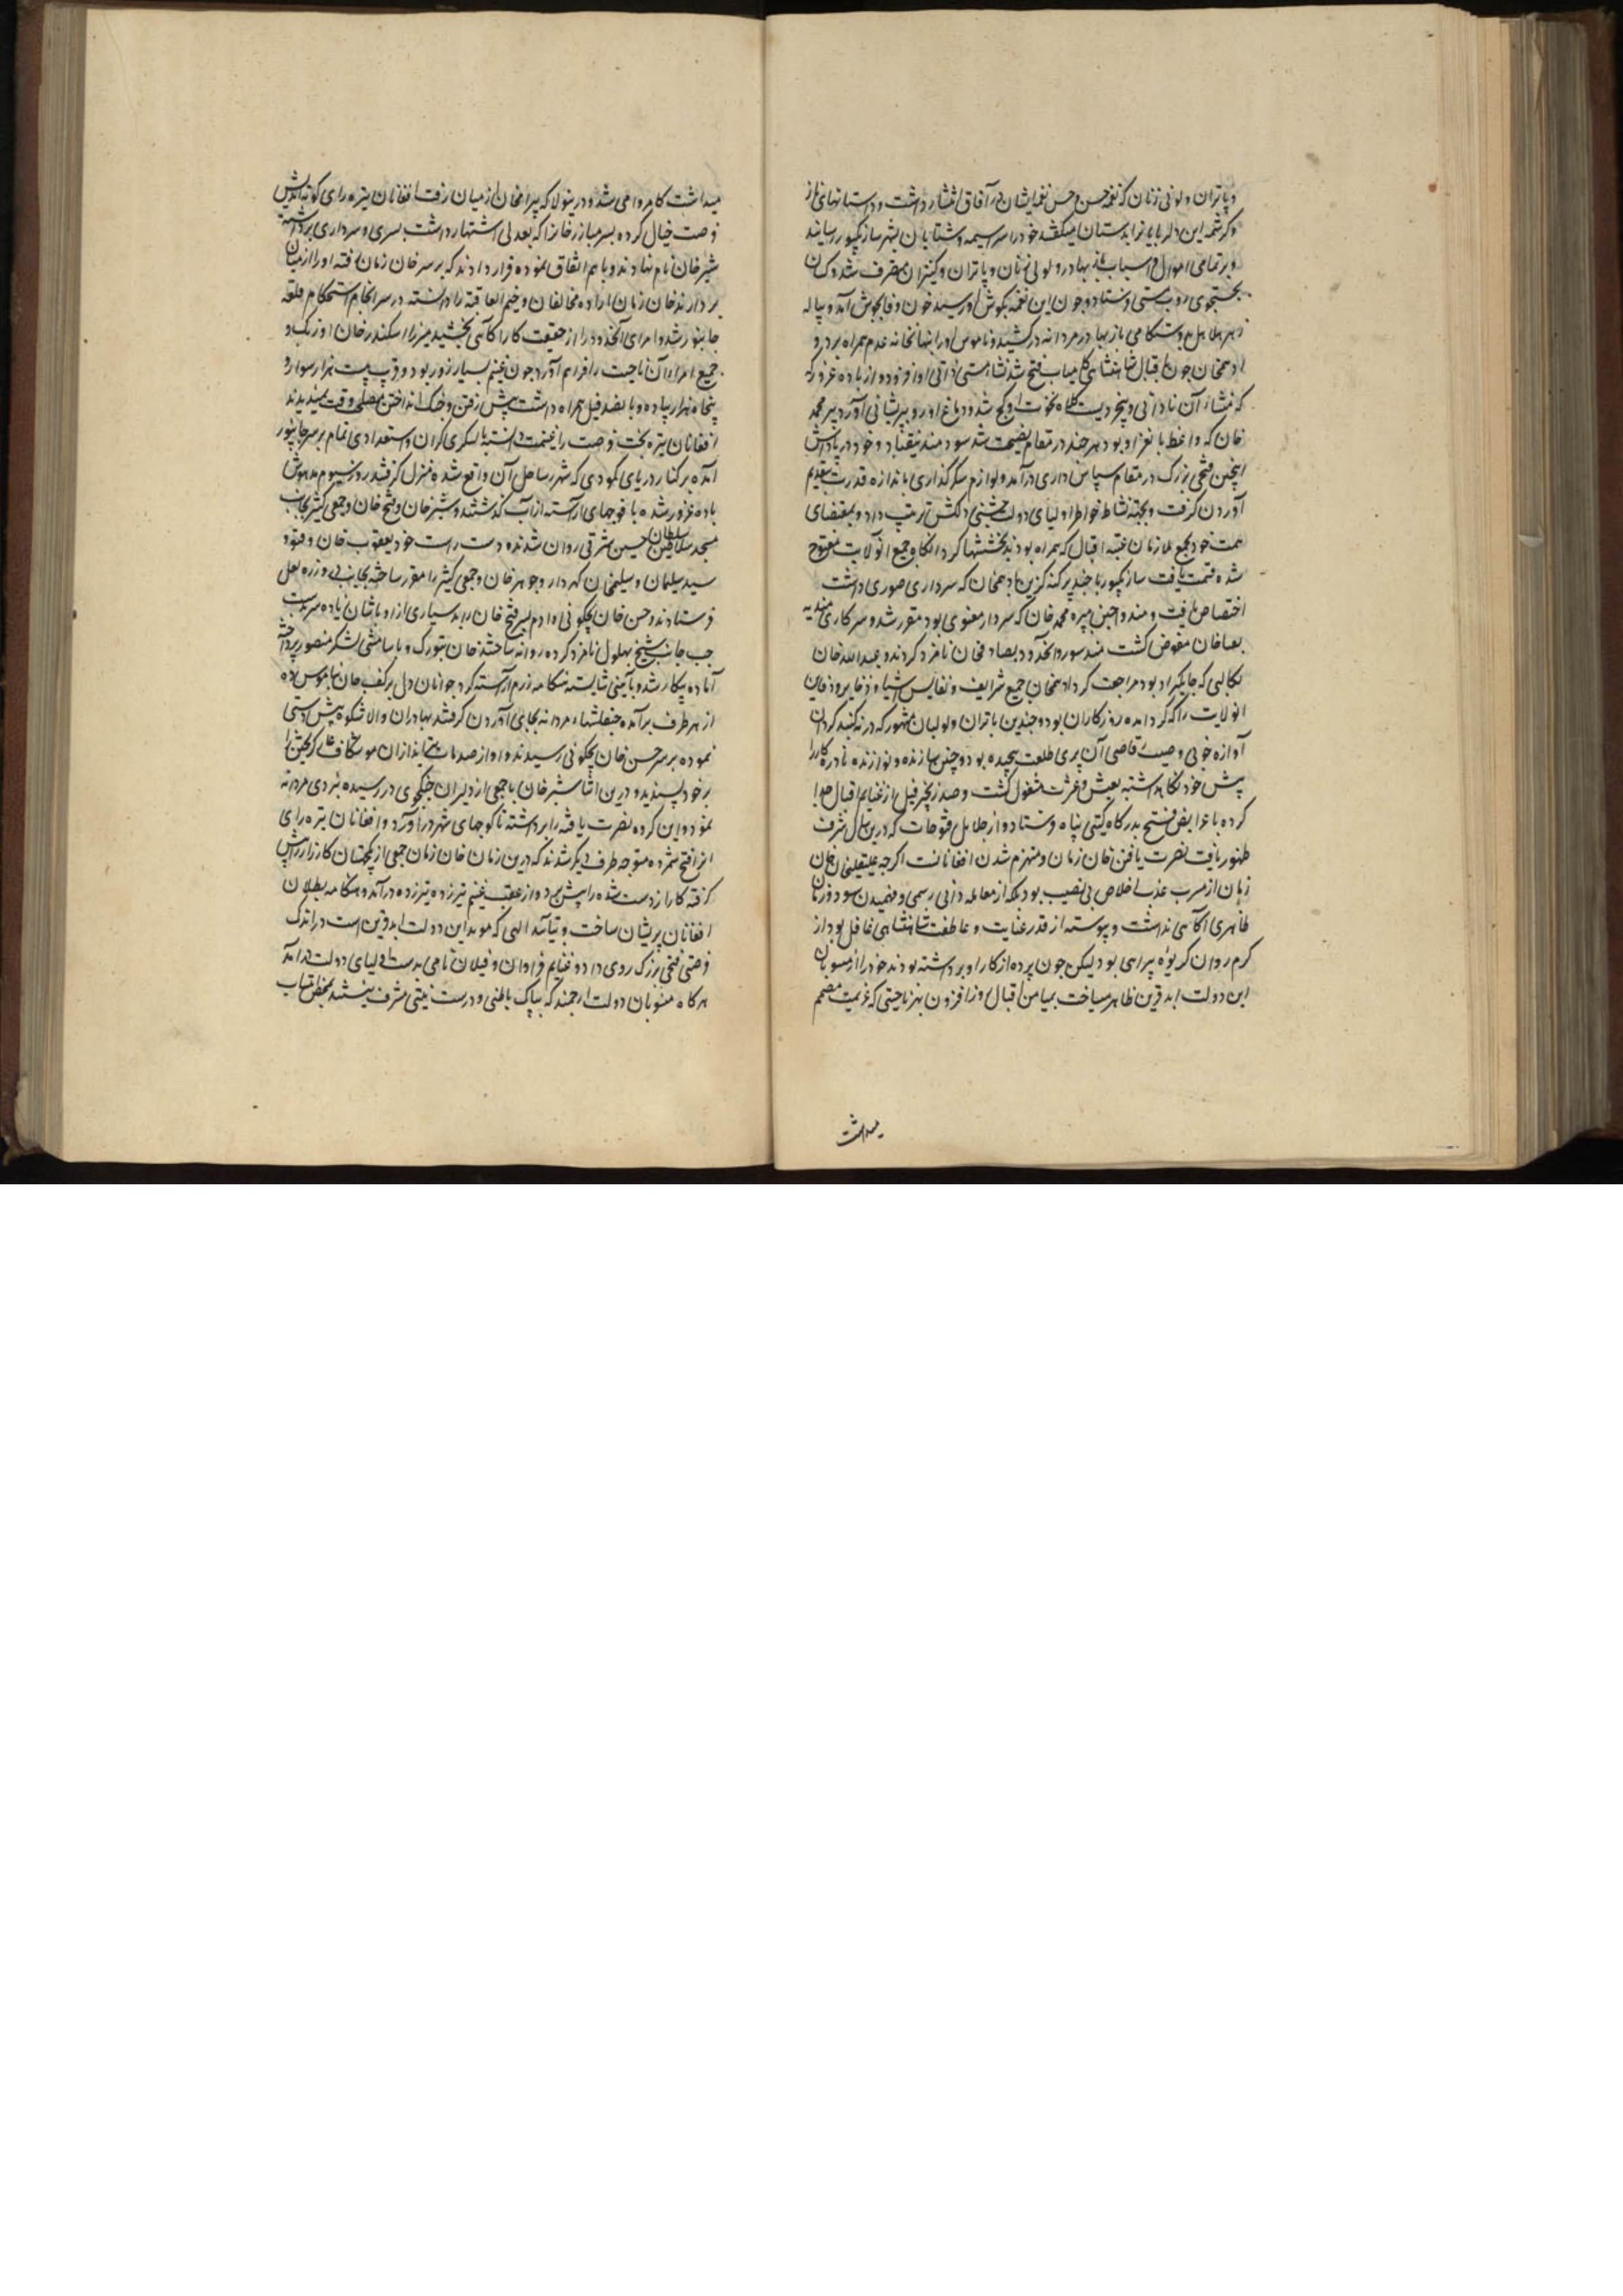 و پاتران و لولی زنان که نغمه حسن و حسن نغمه ایشان در آفاق انتشار داشت و داستانهای ناز
و کرشمه این دلربایان را بدستان میکفتند خود را سراسیمه و شتابان بشهر سارنکپور رسانند
و بر تمامی اموال و اسباب باز بهادر و لولی زنان و پاتران و کنیزان متصرف شد و کسان
بجستجوی روپ متی فرستاد و چون این نغمه بگوش او رسید خون وفا بجوش آمد و پیاله
زهر هلاهل بدوستکامی باز بهادر مردانه درکشید و ناموس او را بنهانخانه عدم همراه برد و
ادهم خان چون باقبال شاهنشاهی کامیاب فتح شد نشاء مستی ذاتی او افزود و از باده غرور
که منشاء آن نادانی و بیخردیست کلاه نخوت او کج شد و دماغ او رو بپریشانی آورد پیر محمد
خان که واعظ بانغز او بود هر چند در مقام نصیحت شد سودمند نیفتاد و خود در پاداش
اینچنین فتحی بزرک در مقام سپاس داری درآمد و لوازم شکر گذاری باندازه قدرت بتقدیم
آوردن گرفت و بجهته نشاط خواطر اولیای دولت جشنی دلکش ترتیب داد و بمقتضای
همت خود بجمیع ملازمان عتبه اقبال که همراه بودند بخششها کرد آنگاه جمیع آن ولایت مفتوح
شده قسمت یافت سارنکپور با چند پرکنه کزین بادهم خان که سرداری صوری داشت
اختصاص یافت و مندو و اجین به پیر محمد خان که سردار معنوی بود مقرر شد و سرکار هندیه
بقیا خان مفوض کشت مندسور و آنحدود بصادق خان نامزد کردند و عبدالله خان
بکالپی که جایگیر او بود مراجعت کرد ادهم خان جمیع شرایف و نفایس اشیا و ذخایر و دفاین
آن ولایت را که گرد آمده روزکاران بود و چندین پاتران و لولیان مشهور که در نه گنبد گردان
آوازه خوبی و صیت رقاصی آن پری طلعت پیچیده بود و چنین سازنده و نوازنده نادره کار را
پیش خود نکاهداشته بعیش و عشرت مشغول کشت و صد زنجیر فیل از غنایم اقبال جدا
کرده با عرایض فتح بدرکاه کیتی پناه فرستاد و از جلایل فتوحات که درین سال شرف
ظهور یافت نصرت یافتن خان زمان و منهزم شدن افغانانست اکرچه علیقلیخان خان
زمان از مشرب عذب اخلاص بی نصیب بود بلکه از معامله دانی رسمی و فهمیدن سود و زیان
ظاهری آکاهی نداشت و پیوسته از قدر عنایت و عاطفت شاهنشاهی غافل بود از
گرم روان کریوه بیراهی بود لیکن چون پرده از کار او بر داشته نبودند خود را از منسوبان
این دولت ابد قرین ظاهر میساخت بمیامن اقبال روزافزون بهر ناحیتی که عزیمت مصمم
میداشت
میداشت کامروا می شد و درینولا که بیرامخان از میان رفت افغانان تیره رای کوته اندیش
فرصت خیال کرده پسر مبارز خان را که بعدلی اشتهار داشت بسری و سرداری برداشته
شیر خان نام نهادند و با هم اتفاق نموده قرار دادند که بر سر خان زمان رفته او را از میان
بردارند خان زمان اراده مخالفان وخیم العاقبة را دانسته در سرانجام استحکام قلعه
جانپور شد و امرای آنحدود را از حقیقت کار آکاهی بخشید میرزا اسکندر خان اوزبک و
جمیع امراء آن ناحیت را فراهم آورد چون غنیم بسیار زور بود و قریب بیست هزار سوار و
پنجاه هزار پیاده و پانصد فیل همراه داشت پیش رفتن و جنک انداختن مصلحت وقت نمیدیدند
افغانان تیره بخت فرصت را غنیمت دانسته با لشکری گران و استعدادی تمام بر سر جانپور
آمده بر کنار دریای کودی که شهر بر ساحل آن واقع شده منزل کرفتند روز سیوم مدهوش
باده غرور شده با فوجهای آراسته از آب کذشتند و شیر خان و فتح خان و جمعی کثیر بجانب
مسجد سلطان حسین شرقی روان شدند و دست راست خود یعقوب خان و فتوو
سید سلیمان و سلیمخان کهردار و جوهر خان و جمعی کثیر را مقرر ساخته بجانب دروازه لعل
فرستادند و حسن خان بچکوتی و ادم پسر فتح خان را با بسیاری از اوباشان زیاده سر بدست
چپ جانب شیخ بهلول نامزد کرده روانه ساختند خان بتوزک و یاسامشی لشکر منصور پرداخته
آماده پیکار شد و بآئینی شایسته هنکامه رزم آراسته گرد جوانان دل بر کف جان بناموس داده
از هر طرف برآمده جنقلشهاء مردانه بجای آوردن کرفتند بهادران والا شکوه پیش دستی
نموده بر سر حسن خان بچکوتی رسیدند و او از صدمات تیغ اندازان موشکاف ننک کریختن را
بر خود پسندید و درین اثنا شیر خان با جمعی از دلیران جنکجوی در رسیده نبردی مردانه
نمود و این کرده نصرت یافته را برداشته تا کوچهای شهر در آورد و افغانان تیره رای
این را فتح شمرده متوجه طرف دیکر شدند که درین زمان خان زمان جمعی از یکجهتان کارزار را پیش
کرفته کار از دست شده را پیش برد و از عقب غنیم تیر زده تیر زده درآمد و هنکامه بطلان
افغانان پریشان ساخت و بتائید الهی که موید این دولت ابد قرین است در اندک
فرصتی فتحی بزرک روی داد و غنایم فراوان و فیلان نامی بدست اولیای دولت درآمد
هرکاه منسوبان دولت ارجمند که بپاک باطنی و درست نیتی مشرف نیستند بمحض انتساب